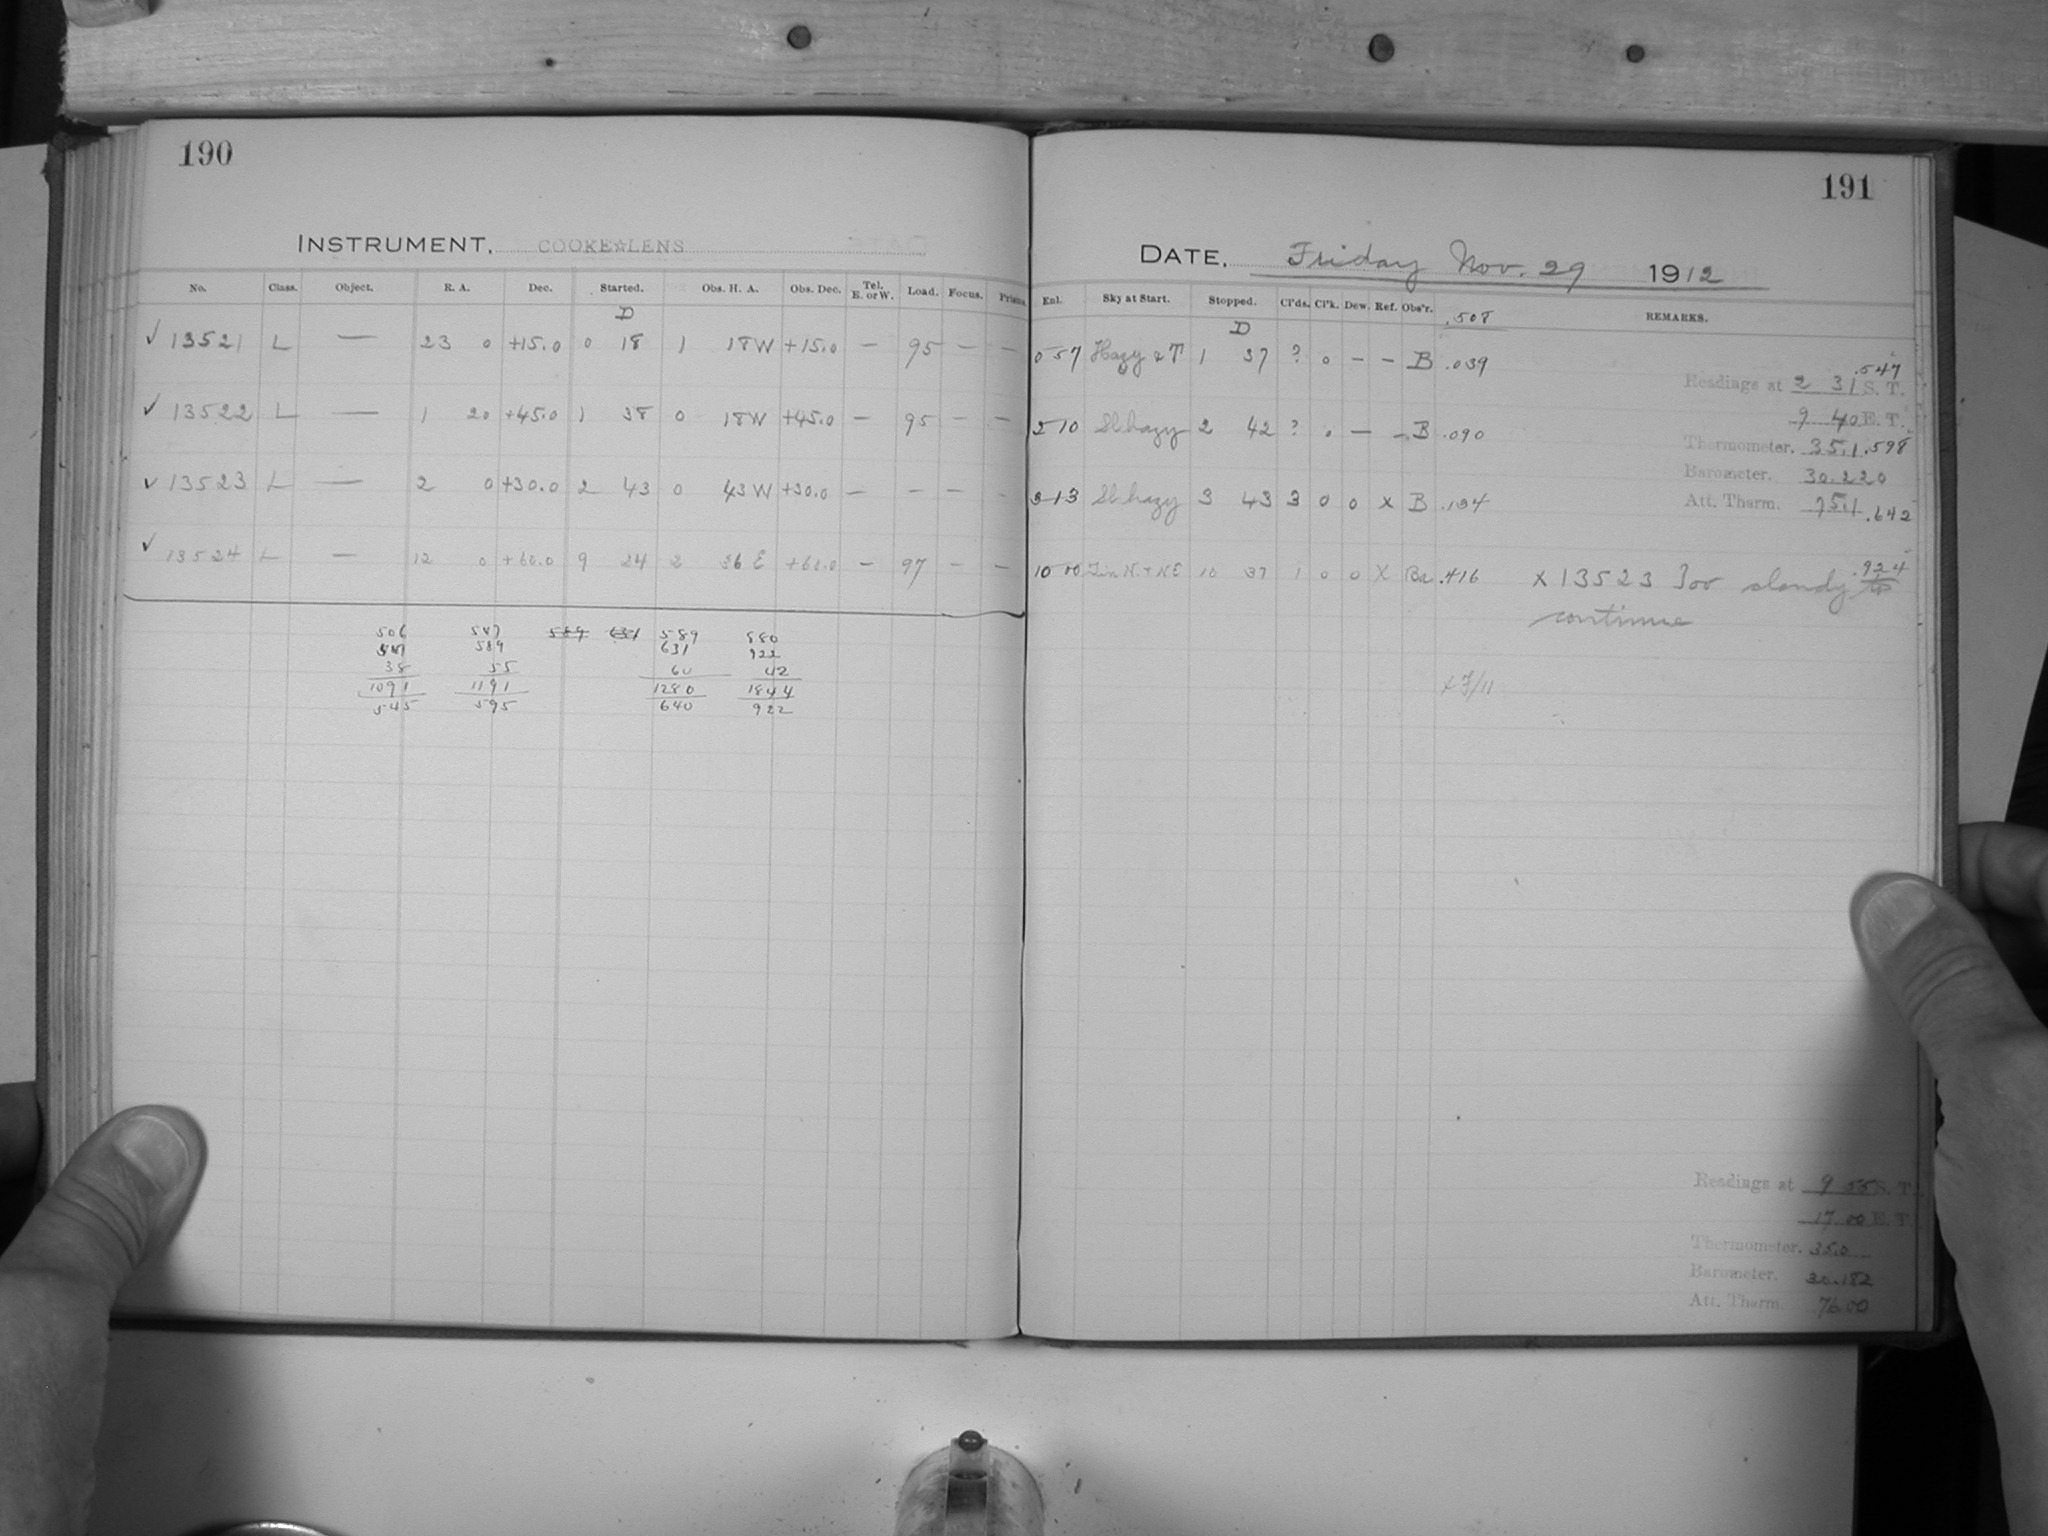 190
INSTRUMENT. COOKE☆LENS
No. Class. Object. R. A. Dec. Started. Obs. H. A. Obs. Dec. Tel. E. or W. Load. Focus. Prisms.
D
✓ 13521 L — 23 0 +15.0 0 18 1 18 W +15.0 — 95 — —
✓ 13522 L — 1 20 +45.0 1 38 0 18 W +45.0 — 95 — —
✓ 13523 L — 2 0 +30.0 2 43 0 43 W +30.0 — — — —
✓ 13524 L — 12 0 +60.0 9 24 2 36 E +60.0 — 97 — —
506 547 589 631 589 880
547 589 631 922
38 55 60 42
1091 1191 1280 1844
545 595 640 922
191
DATE. Friday Nov. 29 1912
Enl. Sky at Start. Stopped. Cl'ds. Cl'k. Dew. Ref. Obs'r. REMARKS.
.508
D
0 57 Hazy & T 1 37 ? 0 — — B .039
.547
Readings at 2 31 S. T.
9 40 E. T.
2 10 Sl hazy 2 42 ? . — — B .090
Thermometer. 35.1 .598
Barometer. 30.220
3 13 Sl hazy 3 43 3 0 0 X B .134
Att. Therm. 75.1 .642
10 00 N + NE 10 37 1 0 0 X Ba .416
.924
x 13523 Too cloudy to
continue
x F/11
Readings at 9 55 S. T.
17 00 E. T.
Thermometer. 35.0
Barometer. 30.182
Att. Therm. 76.00